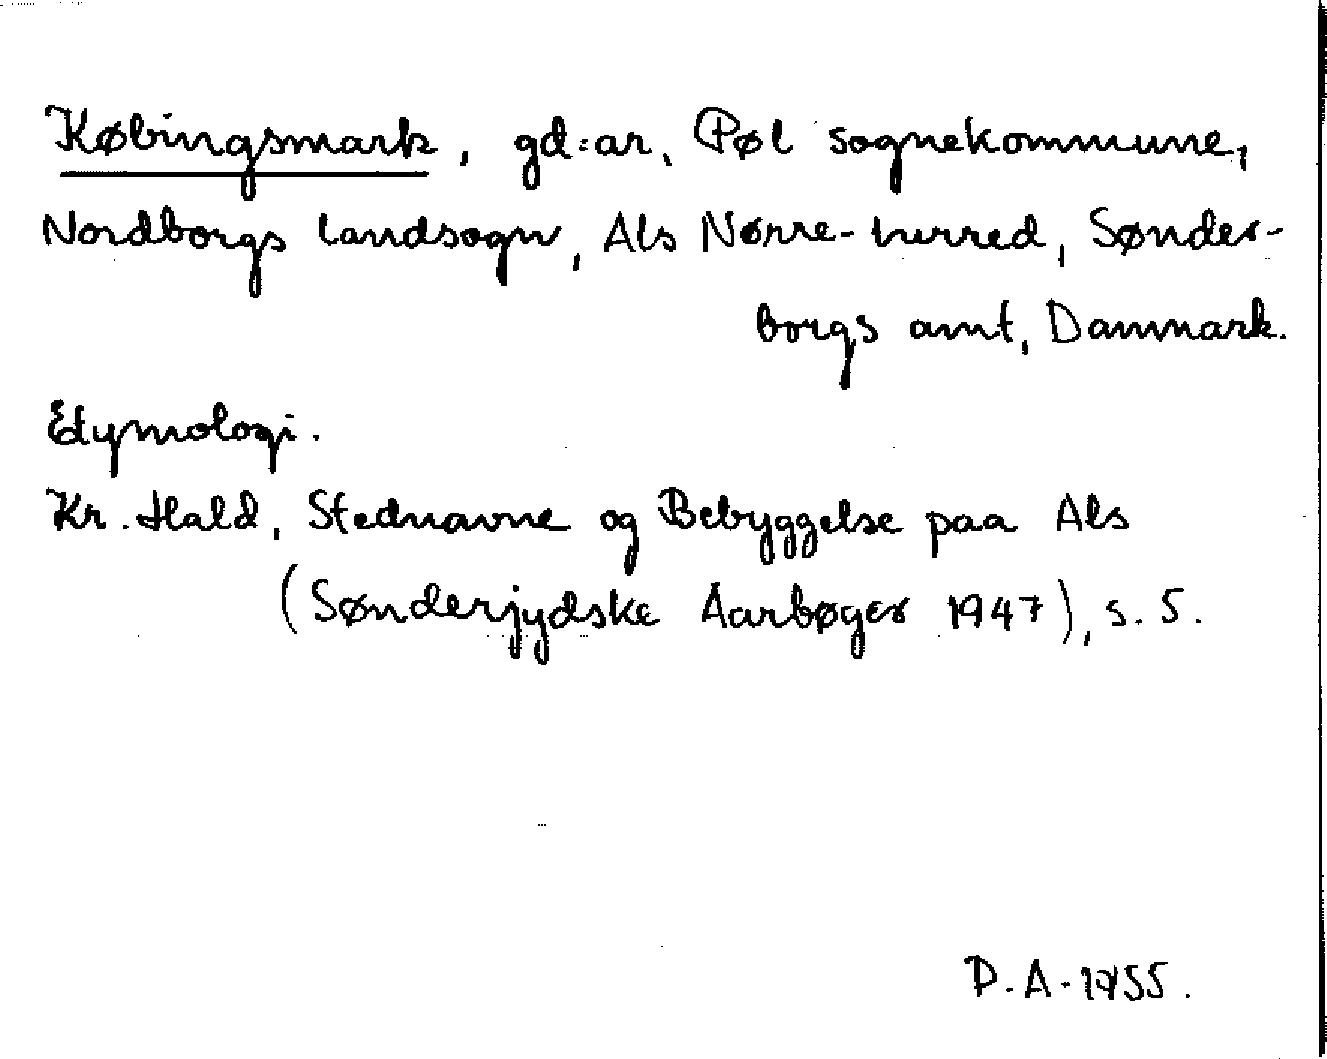 Købingsmark, gd:ar, Pøl sognekommune,
Nordborgs landsogn, Als Nørre-herred, Sønder-
borgs amt, Danmark.
Etymologi.
Kr. Hald, Stednavne og Bebyggelse paa Als
(Sønderjydske Aarbøger 1947), s. 5.
P.A. 1955.